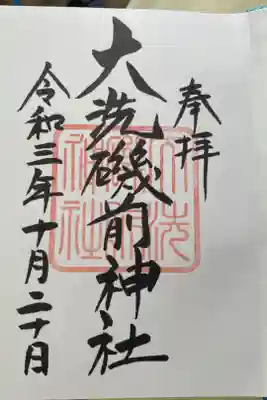 奉拝
大洗磯前神社
令和三年十月二十日